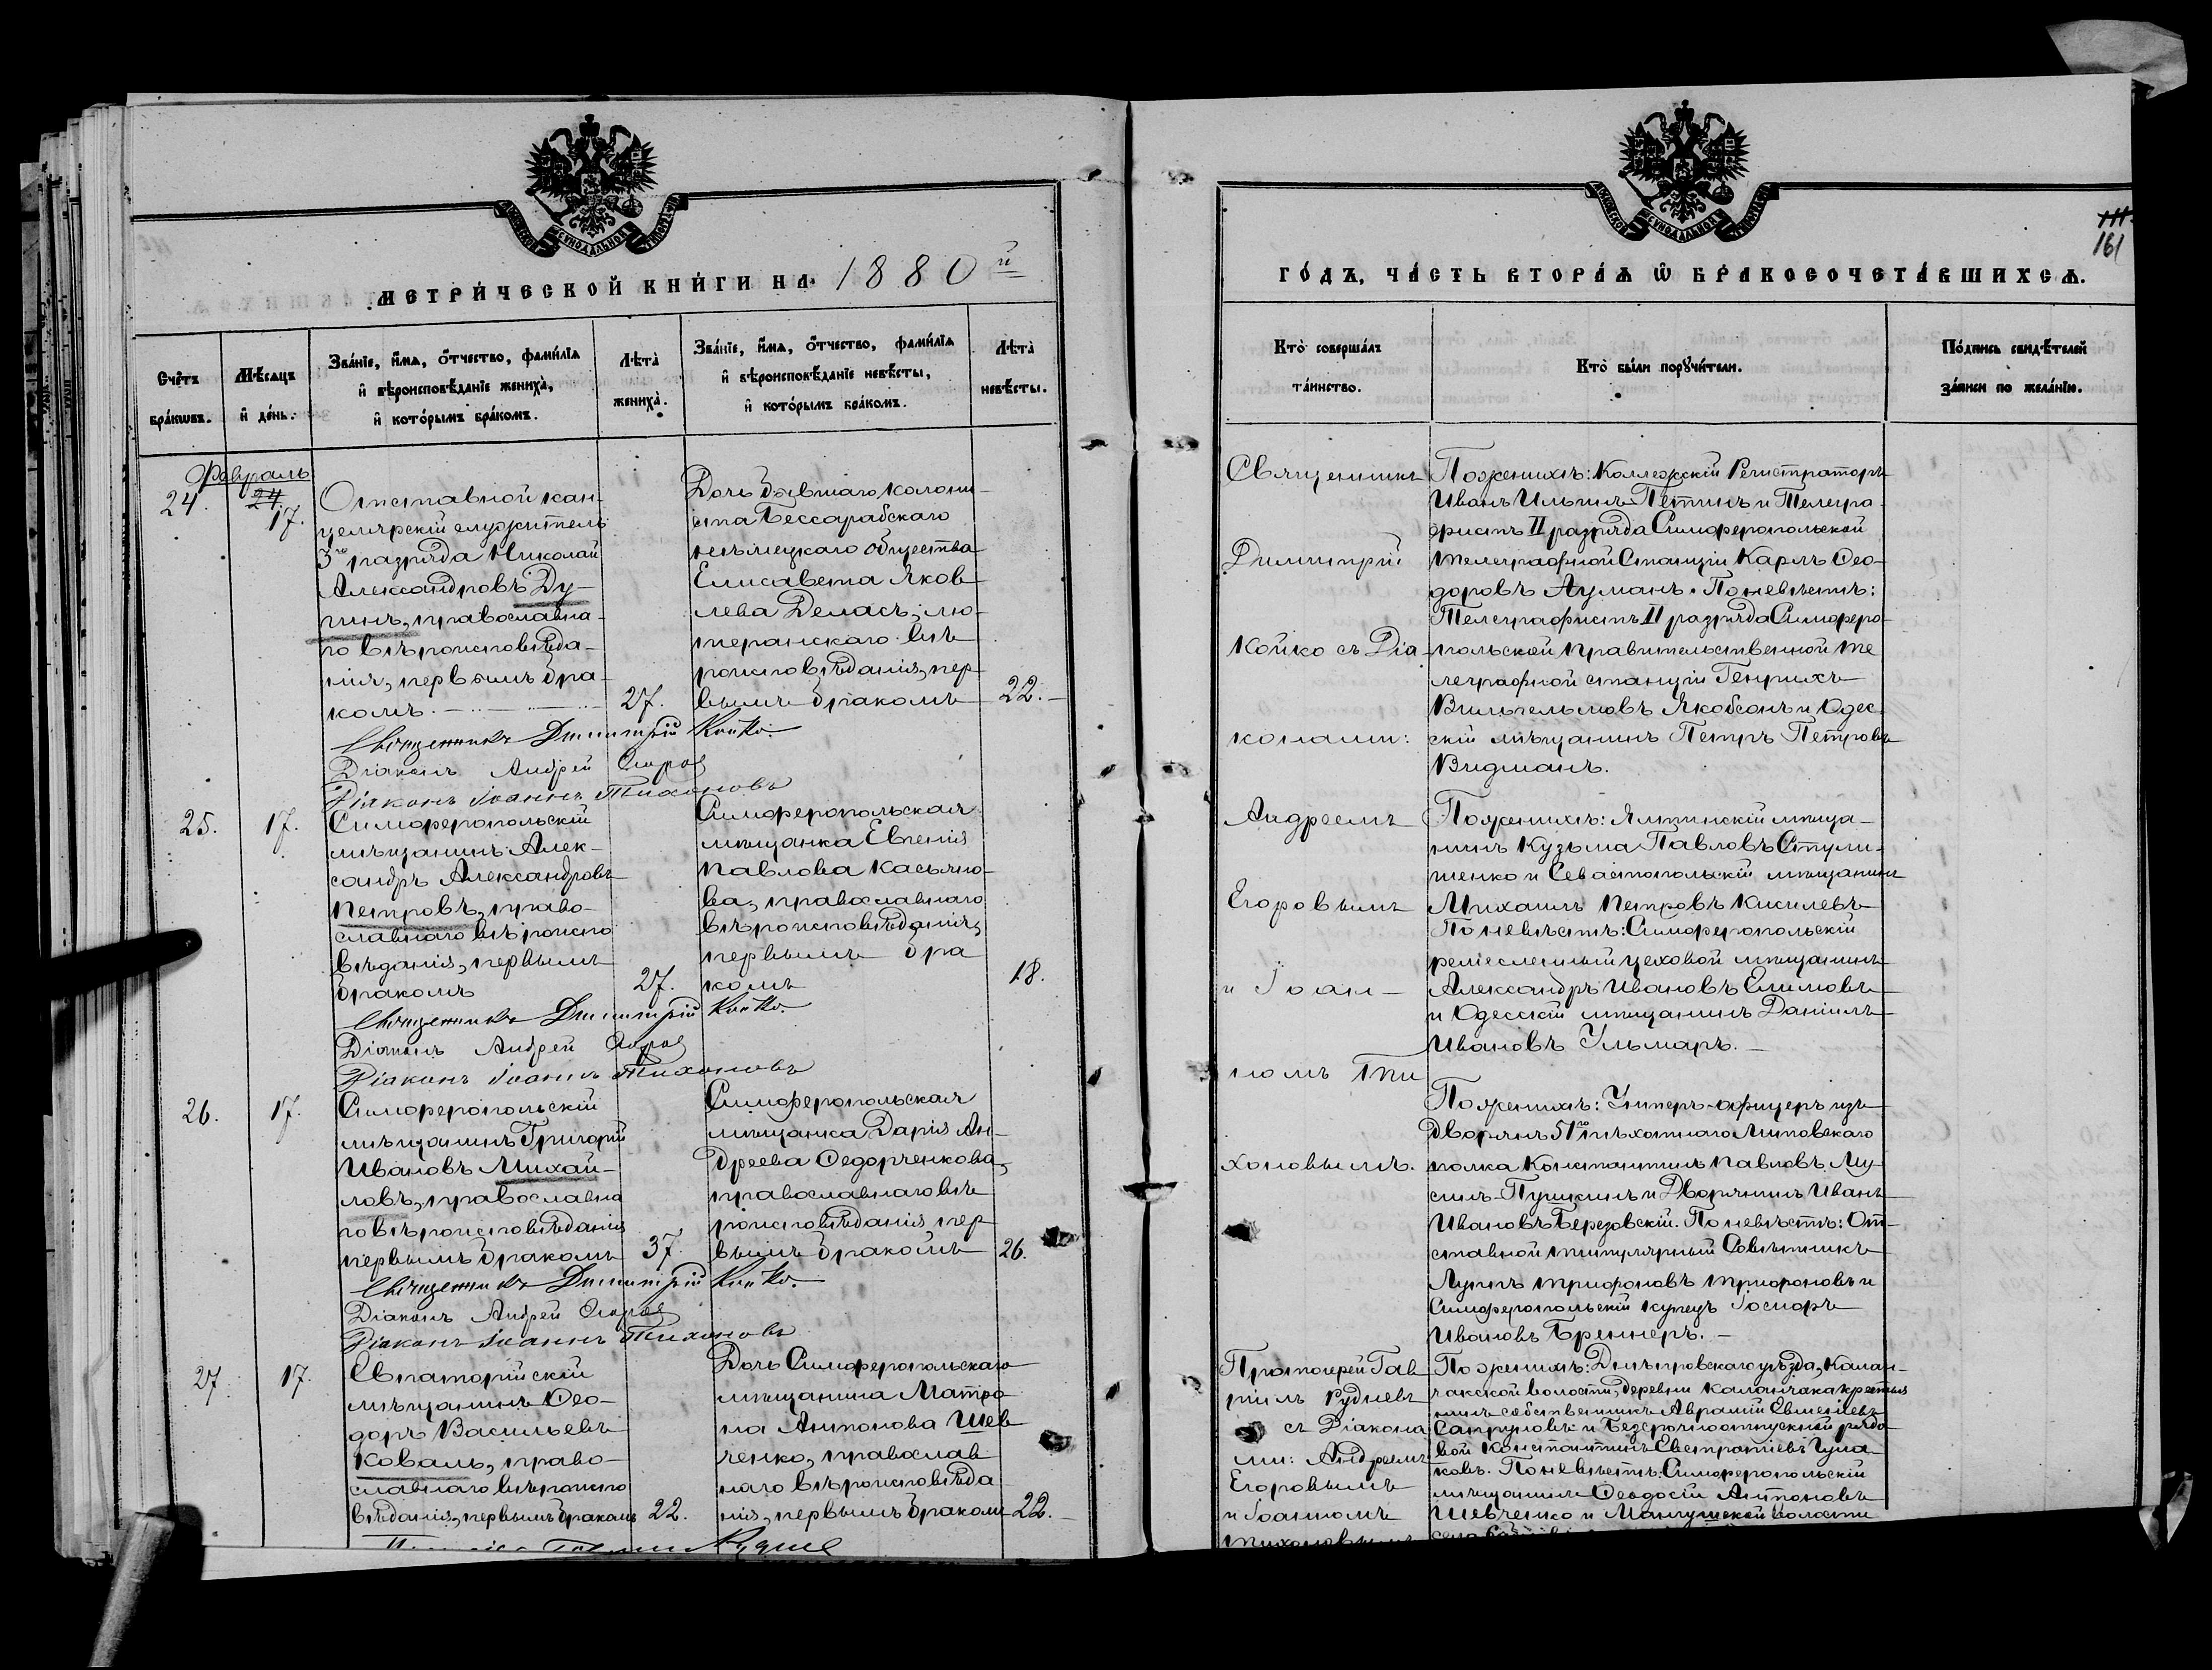 МЕТРИ́ЧЕСКОЙ КНИ́ГИ НА 1880й
Счетъ бра́кѡвъ.
Мѣсяцъ и де́нь.
Зва́нїе, и́мя, о́тчество, фами́лїя и вѣроисповѣ́данїе жениха̀, и кото́рымъ бра́комъ.
Лѣта̀ жениха̀.
Зва́нїе, и́мя, о́тчество, фами́лїя и вѣроисповѣ́данїе невѣ́сты, и кото́рымъ бра́комъ.
Лѣта̀ невѣ́сты.
Февраль
24.
24
17.
Отставной кан-
целярскій служитель
3го разряда Николай
Александровъ Ду-
пинъ, православна-
го вѣроисповѣда-
нія, первымъ бра-
комъ.
27.
Дочь бывшаго колони-
ста Бессарабскаго
нѣмецкаго общества
Елисавета Яков-
лева Деласъ, лю-
теранскаго вѣ-
роисповѣданія, пер-
вымъ бракомъ
22.
Священникъ Димитрій Койко.
Діаконъ Андрей Егоров
Діаконъ Іоаннъ Тихоновъ
25.
17.
Симферопольскій
мѣщанинъ Алек-
сандръ Александровъ
Петровъ, право-
славнаго вѣроиспо
вѣданія, первымъ
бракомъ
27.
Симферопольская
мѣщанка Евгенія
Павлова Касьяно-
ва, православнаго
вѣроисповѣданія,
первымъ бра
комъ
18.
Священникъ Димитрій Койко.
Діаконъ Андрей Егоров
Діаконъ Іоаннъ Тихоновъ
26.
17.
Симферопольскій
мѣщанинъ Григорій
Ивановъ Михай-
ловъ, православна
го вѣроисповѣданія
первымъ бракомъ
37.
Симферопольская
мѣщанка Дарія Ан-
дреева Ѳедорченкова,
православнаго вѣ-
роисповѣданія, пер
вымъ бракомъ
26.
Священникъ Димитрій Койко.
Діаконъ Андрей Егоров
Діаконъ Іоаннъ Тихоновъ
27.
17.
Евпаторійскій
мѣщанинъ Ѳео-
доръ Васильевъ
Коваль, право-
славнаго вѣроиспо
вѣданія, первымъ бракомъ
22.
Дочь Симферопольскаго
мѣщанина Матро
на Антонова Шев
ченко, православ
наго вѣроисповѣда
нія, первымъ бракомъ
22.
111.
161
ГО́ДЪ, ЧА́СТЬ ВТОРА́Я Ѿ БРАКОСОЧЕТА́ВШИХСЯ.
Кто̀ соверша́лъ та́инство.
Кто̀ бы́ли поручи́тели.
По́дпись свидѣ́телей за́писи по жела́нїю.
Священникъ
Димитрій
Койко съ Діа-
конами:
Андреемъ
Егоровымъ
и Іоан-
номъ Ти
хоновымъ.
По женихѣ: Коллежскій Регистраторъ
Иванъ Ильинъ Петинъ и Телегра-
фистъ II разряда Симферопольской
телеграфной Станціи Карлъ Ѳео-
доровъ Ауманъ. По невѣстѣ:
Телеграфистъ II разряда Симферо-
польской правительственной те
леграфной станціи Генрихъ
Вильгельмовъ Якобсонъ и Одес-
скій мѣщанинъ Петръ Петровъ
Видманъ.
По женихѣ: Ялтинскій мѣща-
нинъ Кузьма Павловъ Стули-
шенко и Севастопольскій мѣщанинъ
Михаилъ Петровъ Киселевъ
По невѣстѣ: Симферопольскій
ремесленный цеховой мѣщанинъ
Александръ Ивановъ Климовъ
и Одесскій мѣщанинъ Даніилъ
Ивановъ Ульмаръ.
По женихѣ: Унтеръ-офицеръ изъ
дворянъ 51го пѣхотнаго Литовскаго
полка Константинъ Павловъ Му-
синъ-Пушкинъ и Дворянинъ Иванъ
Ивановъ Березовскій. По невѣстѣ: От-
ставной титулярный Совѣтникъ
Лупъ Трифоновъ Трифоновъ и
Симферопольскій купецъ Іосифъ
Ивановъ Бреннеръ.
Протоіерей Гав
ріилъ Рудневъ
съ Діакона
ми: Андреемъ
Егоровымъ
и Іоанномъ
Тихоновымъ
По женихѣ: Днѣпровскаго уѣзда, Калан-
чакской волости, деревни Каланчака крестья
нинъ собственникъ Аврамій Евменіевъ
и Безсрочноотпускной рядо
вой Константинъ Евстратіевъ
ковъ. По невѣстѣ: Симферопольскій
мѣщанинъ Ѳеодосій Антоновъ
Шевченко и Мангушской волости